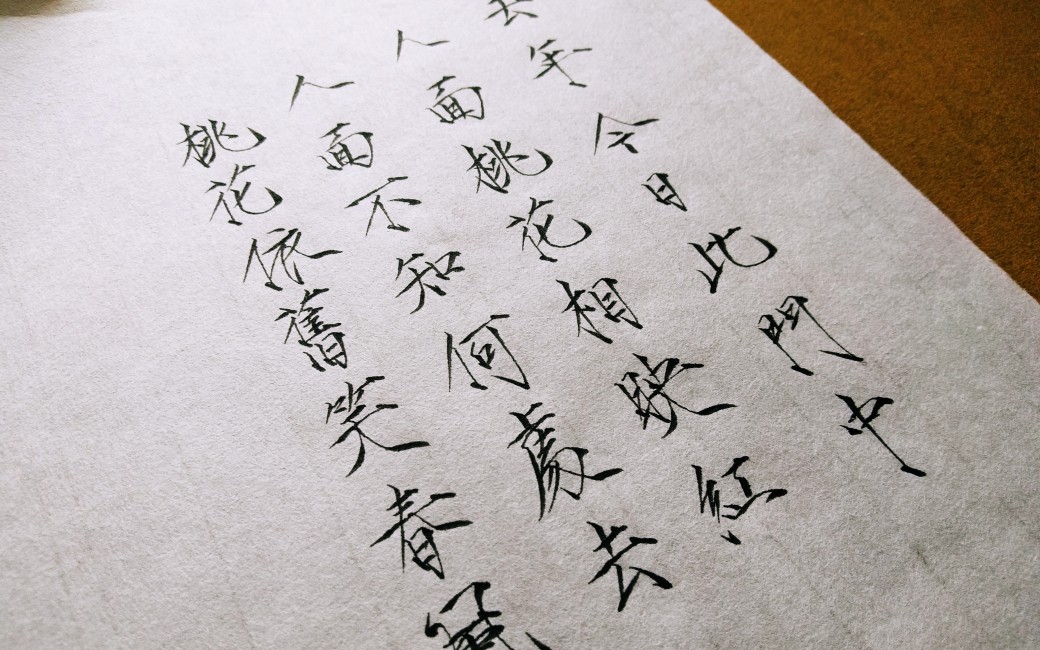 去年今日此門中
人面桃花相映紅
人面不知何處去
桃花依舊笑春風